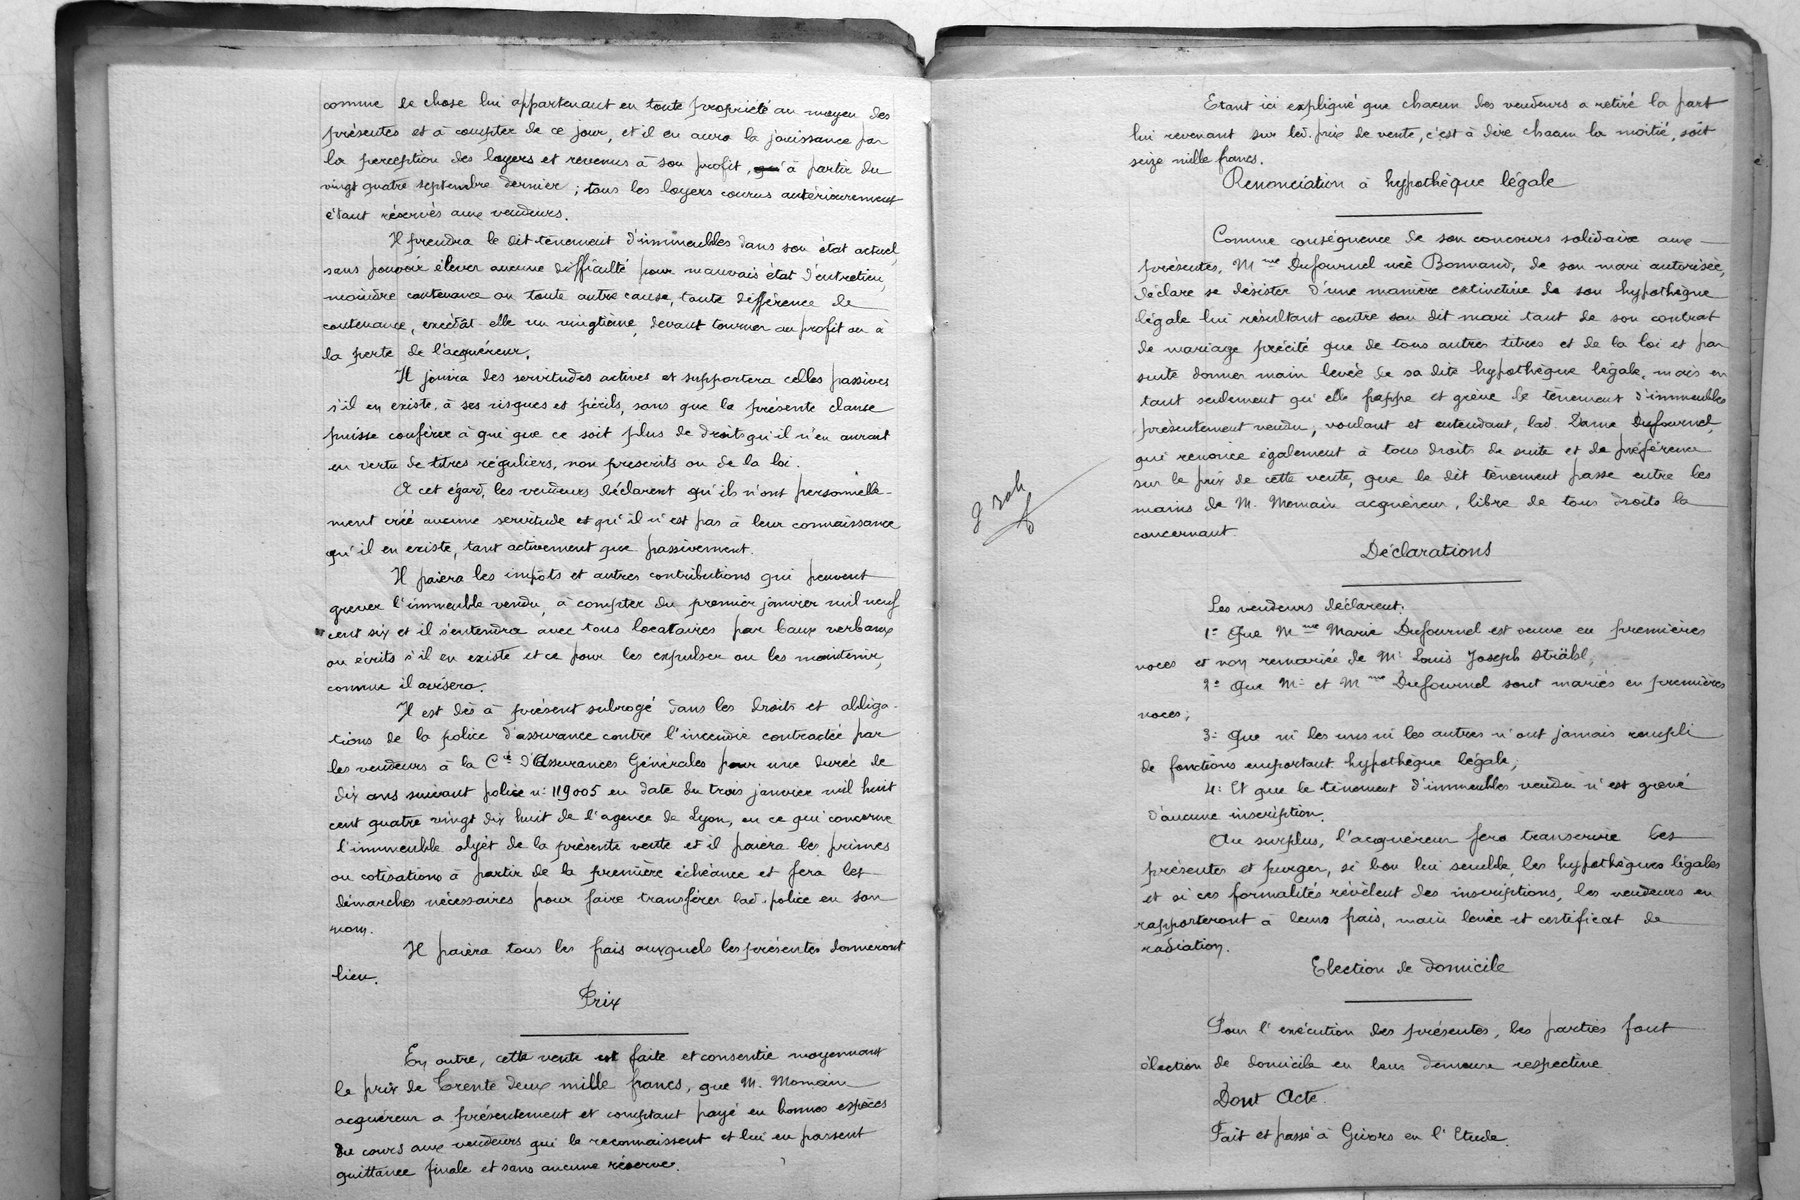 comme de chose lui appartenant en toute propriété au moyen des
présentes et à compter de ce jour, et il en aura la jouissance par
la perception des loyers et revenus à son profit, à partir du
vingt quatre septembre dernier ; tous les loyers courus antérieurement
étant réservés aux vendeurs.
Il prendra le dit tènement d'immeubles dans son état actuel,
sans pouvoir élever aucune difficulté pour mauvais état d'entretien,
moindre contenance ou toute autre cause, toute différence de
contenance, excédât-elle un vingtième, devant tourner au profit ou à
la perte de l'acquéreur.
Il jouira des servitudes actives et supportera celles passives
s'il en existe, à ses risques et périls, sans que la présente clause
puisse conférer à qui que ce soit plus de droits qu'il n'en aurait
en vertu de titres réguliers, non prescrits ou de la loi.
A cet égard, les vendeurs déclarent qu'ils n'ont personnelle-
ment créé aucune servitude et qu'il n'est pas à leur connaissance
qu'il en existe, tant activement que passivement.
Il paiera les impôts et autres contributions qui peuvent
grever l'immeuble vendu, à compter du premier janvier mil neuf
cent six et il s'entendra avec tous locataires par baux verbaux
ou écrits s'il en existe et ce pour les expulser ou les maintenir,
comme il avisera.
Il est dès à présent subrogé dans les droits et obliga-
tions de la police d'assurance contre l'incendie contractée par
les vendeurs à la Cie d'Assurances Générales pour une durée de
dix ans suivant police n: 119005 en date du trois janvier mil huit
cent quatre vingt dix huit de l'agence de Lyon, en ce qui concerne
l'immeuble objet de la présente vente et il paiera les primes
ou cotisations à partir de la première échéance et fera les
démarches nécessaires pour faire transférer lad. police en son
nom.
Il paiera tous les frais auxquels les présentes donneront
lieu.
Prix
En outre, cette vente est faite et consentie moyennant
le prix de Trente deux mille francs, que M. Momain
acquéreur a présentement et comptant payé en bonnes espèces
du cours aux vendeurs qui le reconnaissent et lui en passent
quittance finale et sans aucune réserve.
Etant ici expliqué que chacun des vendeurs a retiré la part
lui revenant sur led. prix de vente, c'est à dire chacun la moitié, soit
seize mille francs.
Renonciation à hypothèque légale
Comme conséquence de son concours solidaire aux
présentes, Mme Dufournel née Bonnand, de son mari autorisée,
déclare se désister d'une manière extinctive de son hypothèque
légale lui résultant contre son dit mari tant de son contrat
de mariage précité que de tous autres titres et de la loi et par
suite donner main levée de sa dite hypothèque légale, mais en
tant seulement qu'elle frappe et grève le tènement d'immeubles
présentement vendu, voulant et entendant, lad. Dame Dufournel,
qui renonce également à tous droits de suite et de préférence
sur le prix de cette vente, que le dit tènement passe entre les
mains de M. Momain acquéreur, libre de tous droits la
concernant.
Déclarations
Les vendeurs déclarent.
1º Que Mme Marie Dufournel est veuve en premières
noces et non remariée de Mr Louis Joseph Sträbl,
2º Que Mr et Mme Dufournel sont mariés en premières
noces;
3º Que ni les uns ni les autres n'ont jamais rempli
de fonctions emportant hypothèque légale;
4º Et que le tènement d'immeubles vendu n'est grevé
d'aucune inscription.
Au surplus, l'acquéreur fera transcrire les
présentes et purger, si bon lui semble, les hypothèques légales
et si ces formalités révèlent des inscriptions, les vendeurs en
rapporteront à leurs frais, main levée et certificat de
radiation.
Election de domicile
Pour l'exécution des présentes, les parties font
élection de domicile en leur demeure respective
Dont Acte.
Fait et passé à Givors en l'Etude.